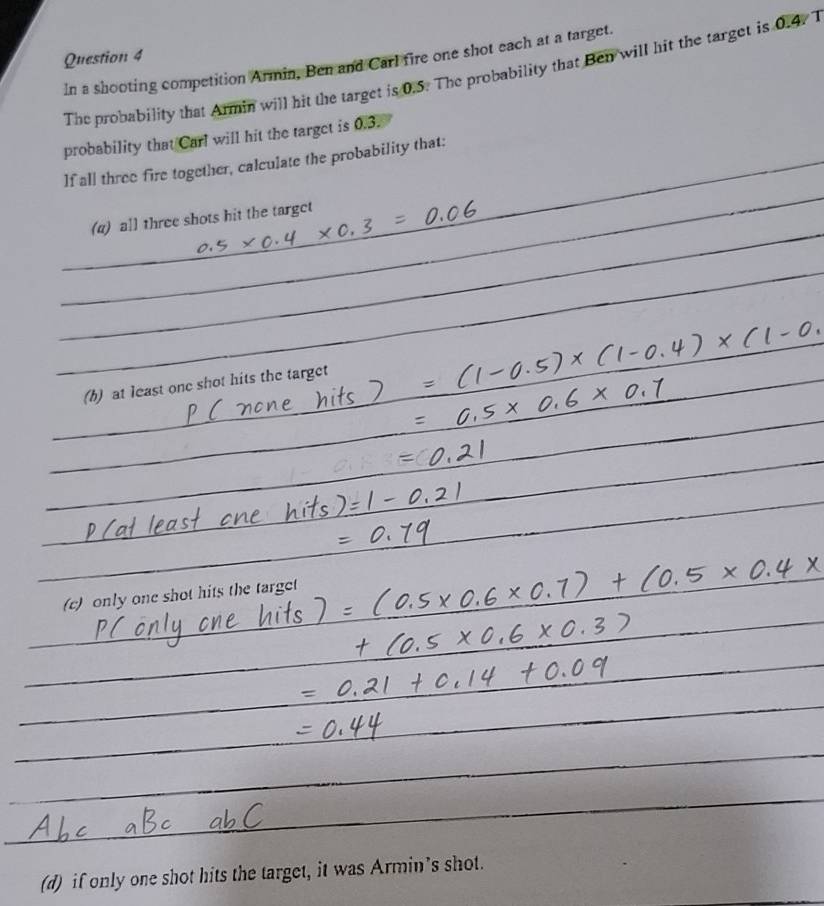 Question 4
In a shooting competition Armin, Ben and Carl fire one shot each at a target.
The probability that Armin will hit the target is 0.5. The probability that Ben will hit the target is 0.4. T
probability that Carl will hit the target is 0.3.
If all three fire together, calculate the probability that:
(a) all three shots hit the target
0.5 × 0.4 × 0.3 = 0.06
(b) at least one shot hits the target
P( none hits ) = (1-0.5) × (1-0.4) × (1-0.
= 0.5 × 0.6 × 0.7
= 0.21
P(at least one hits) = 1 - 0.21
= 0.79
(c) only one shot hits the target
P( only one hits ) = (0.5 × 0.6 × 0.7) + (0.5 × 0.4 ×
+ (0.5 × 0.6 × 0.3)
= 0.21 + 0.14 + 0.09
= 0.44
Abc aBc abC
(d) if only one shot hits the target, it was Armin's shot.